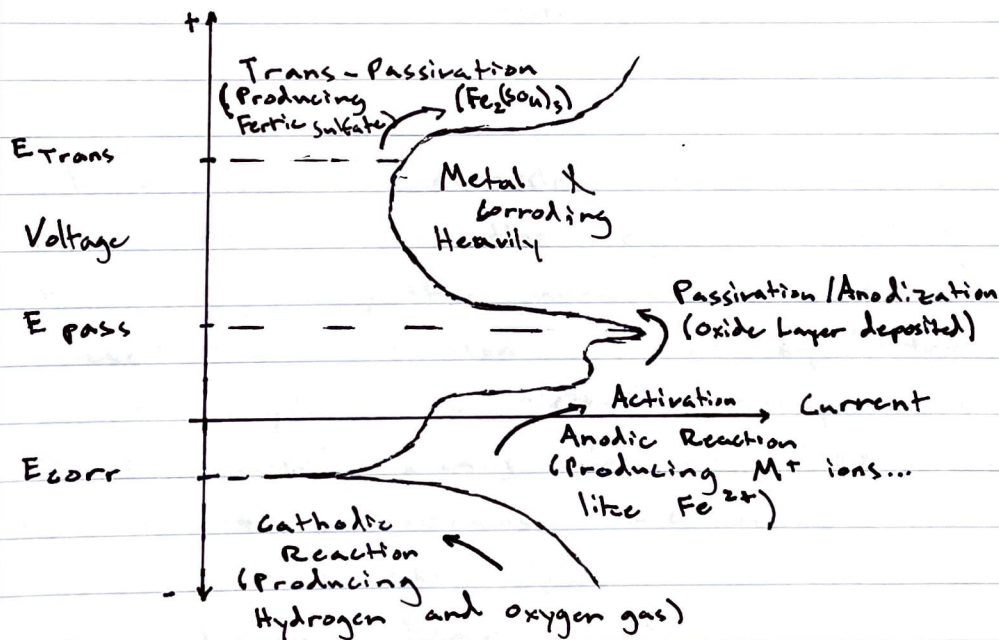 +
Trans-Passivation
(Producing (Fe₂(SO₄)₃)
Ferric Sulfate)
E Trans
Metal X
Corroding
Heavily
Voltage
Passivation/Anodization
(Oxide Layer deposited)
E pass
Activation
Current
Anodic Reaction
(Producing M⁺ ions...
like Fe²⁺)
E corr
Cathodic
Reaction
(Producing
Hydrogen and oxygen gas)
-